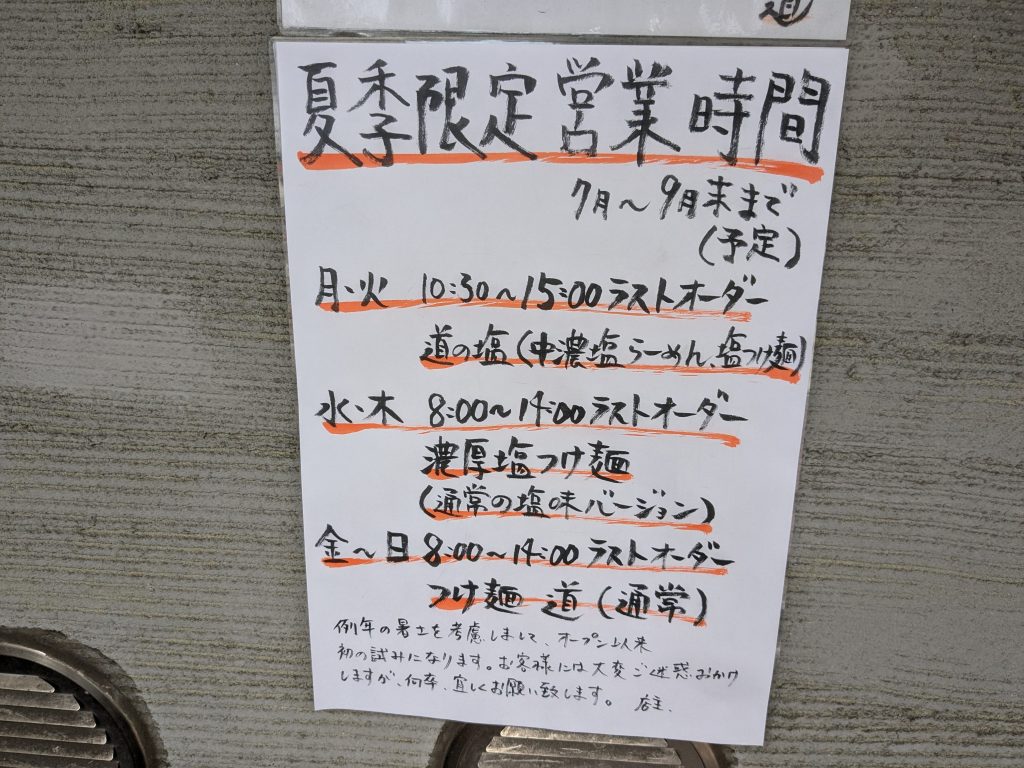 道
夏季限定営業時間
7月～9月末まで
(予定)
月・火 10:30～15:00 ラストオーダー
道の塩(中濃塩らーめん、塩つけ麺)
水・木 8:00～14:00 ラストオーダー
濃厚塩つけ麺
(通常の塩味バージョン)
金～日 8:00～14:00 ラストオーダー
つけ麺 道(通常)
例年の暑さを考慮しまして、オープン以来
初の試みになります。お客様には大変ご迷惑おかけ
しますが、何卒、宜しくお願い致します。 店主、